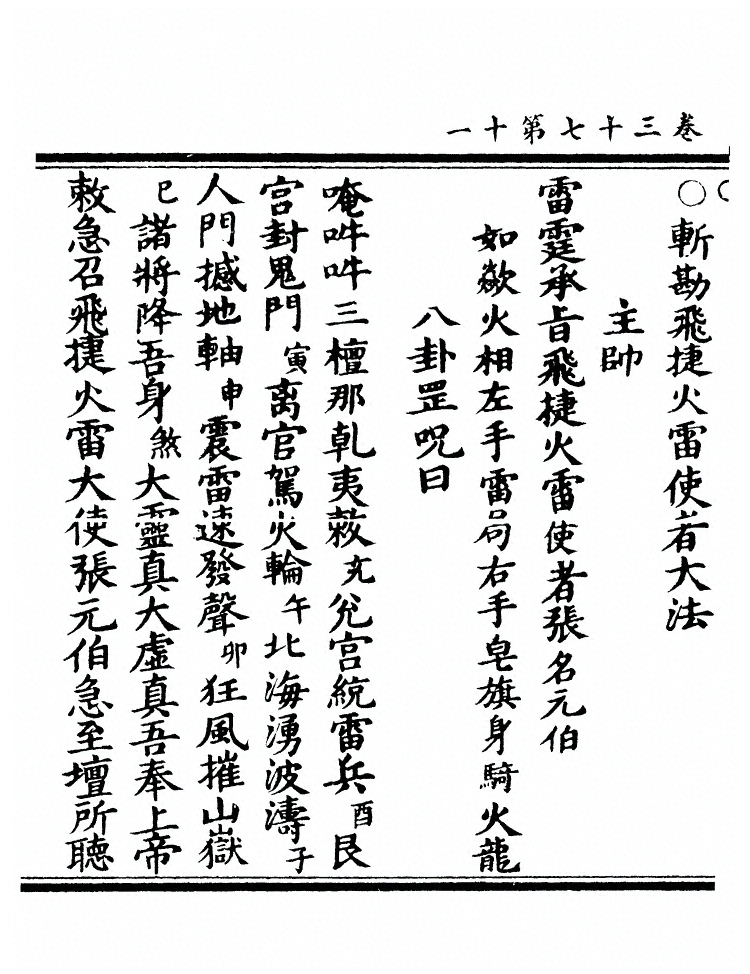 卷三十七第十一
○斬勘飛捷火雷使者大法
主帥
雷霆承㫖飛捷火雷使者張名元伯
如歘火相左手雷局右手皂旗身騎火龍
八卦罡呪曰
唵吽吽三檀那乹夷敕亥兊宮統雷兵酉艮
宮封鬼門寅离官駕火輪午北海湧波濤子
人門撼地軸申震雷速發聲卯狂風摧山嶽
巳諸將降吾身煞大靈真大虛真吾奉上帝
敕急召飛捷火雷大使張元伯急至壇所聴